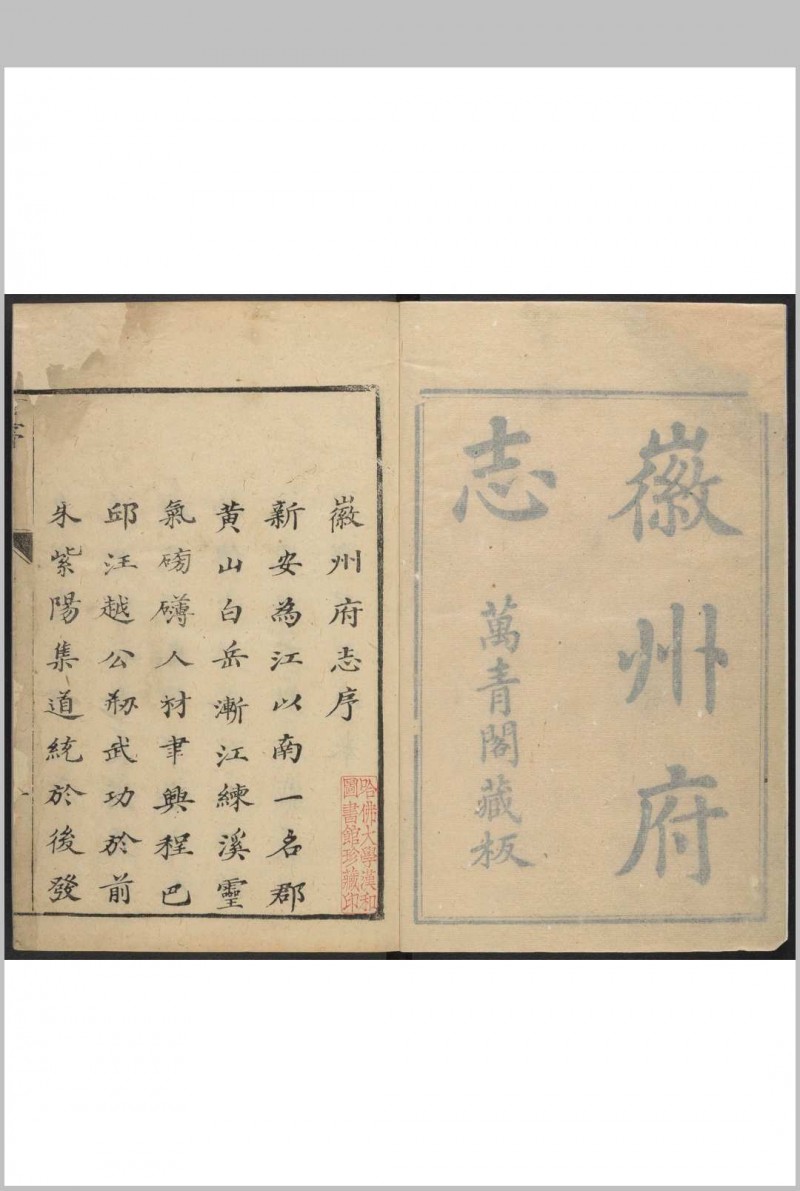 徽州府
志
萬青閣藏板
徽州府志序
新安為江以南一名郡
黄山白岳漸江練溪靈
氣磅礴人材聿興程巴
邱汪越公剏武功於前
朱紫陽集道統於後發
哈佛大學漢和
圖書館珍藏印